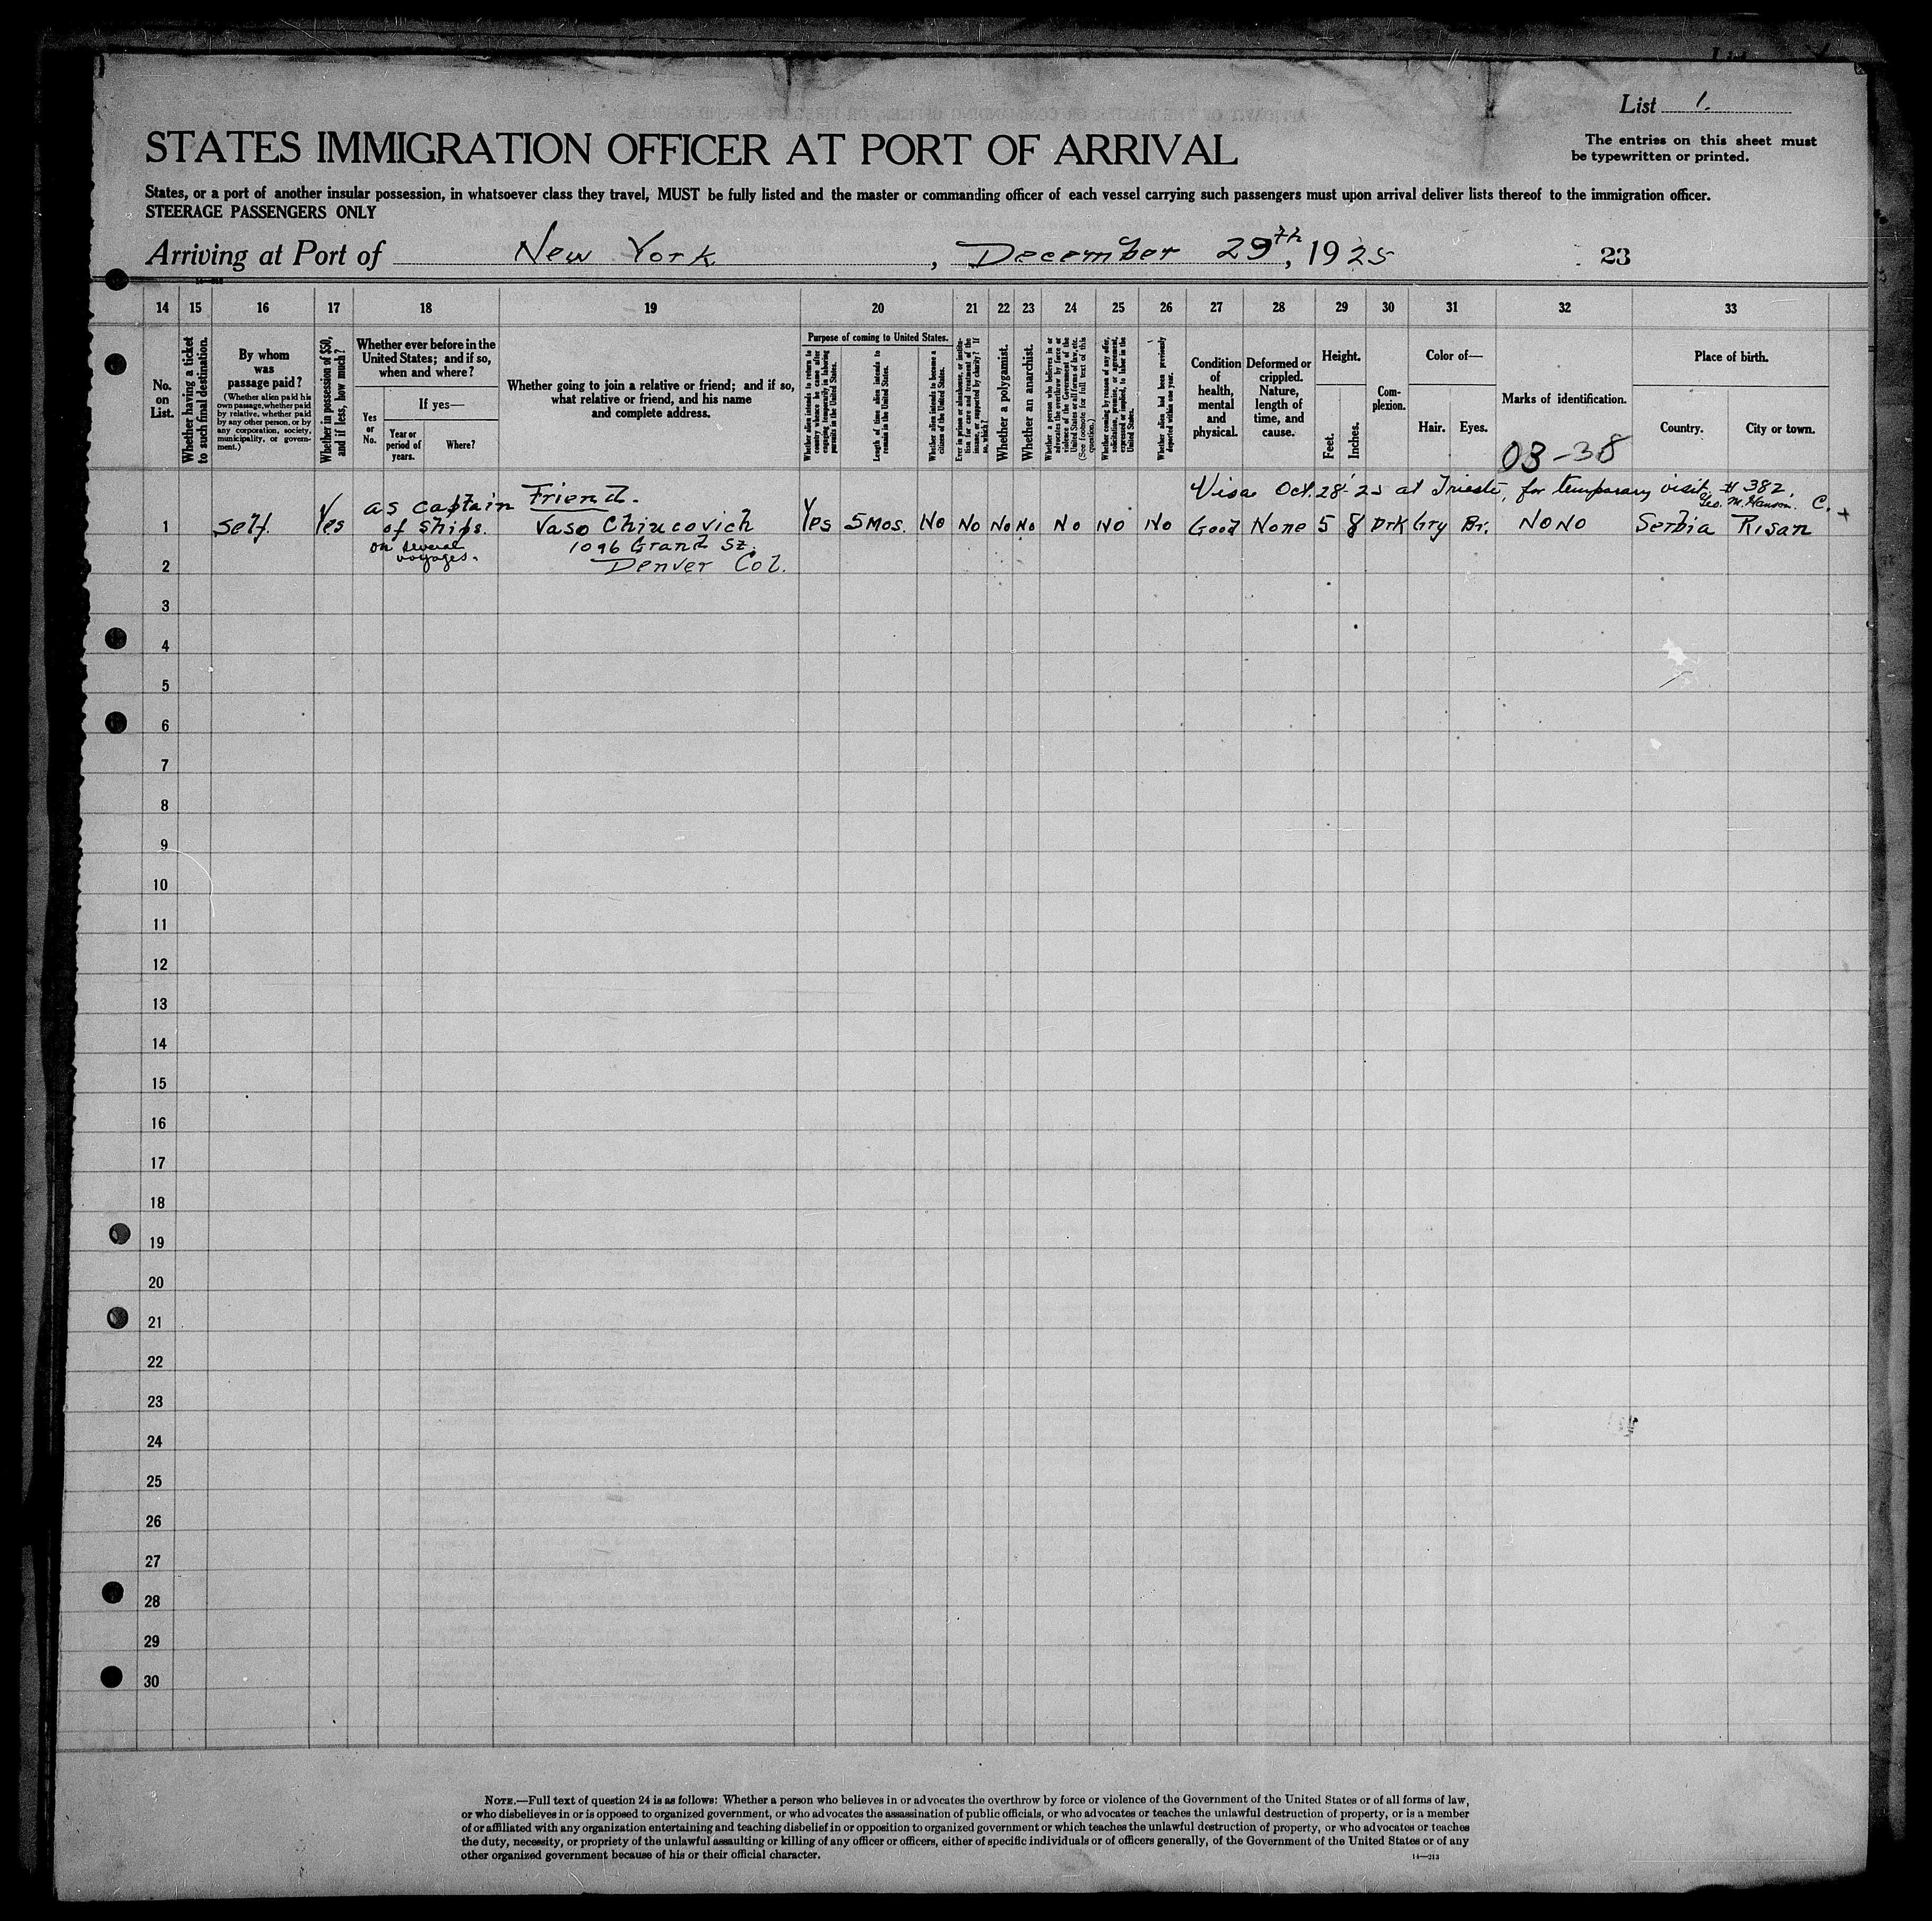 List 1.
The entries on this sheet must
be typewritten or printed.
STATES IMMIGRATION OFFICER AT PORT OF ARRIVAL
States, or a port of another insular possession, in whatsoever class they travel, MUST be fully listed and the master or commanding officer of each vessel carrying such passengers must upon arrival deliver lists thereof to the immigration officer.
STEERAGE PASSENGERS ONLY
Arriving at Port of New York, December 29th, 1925 23
14 15 16 17 18 19 20 21 22 23 24 25 26 27 28 29 30 31 32 33
No.
on
List.
Whether having a ticket
to such final destination.
By whom
was
passage paid?
(Whether alien paid his
own passage, whether paid
by relative, whether paid
by any other person, or by
any corporation, society,
municipality, or govern-
ment.)
Whether in possession of $50,
and if less, how much?
Whether ever before in the
United States; and if so,
when and where?
Yes
or
No.
If yes—
Year or
period of
years.
Where?
Whether going to join a relative or friend; and if so,
what relative or friend, and his name
and complete address.
Purpose of coming to United States.
Whether alien intends to return to
country whence he came after
engaging temporarily in laboring
pursuits in the United States.
Length of time alien intends to
remain in the United States.
Whether alien intends to become a
citizen of the United States.
Ever in prison or almshouse, or institu-
tion for care and treatment of the
insane, or supported by charity? If
so, which?
Whether a polygamist.
Whether an anarchist.
Whether a person who believes in or
advocates the overthrow by force or
violence of the Government of the
United States or all forms of law, etc.
(See footnote for full text of this
question.)
Whether coming by reason of any offer,
solicitation, promise, or agreement,
expressed or implied, to labor in the
United States.
Whether alien had been previously
deported within one year.
Condition
of
health,
mental
and
physical.
Deformed or
crippled.
Nature,
length of
time, and
cause.
Height.
Feet.
Inches.
Com-
plexion.
Color of—
Hair. Eyes.
Marks of identification.
03-38
Place of birth.
Country. City or town.
Visa Oct. 28-'25 at Trieste, for temporary visit, # 382.
Geo. M. Hanson. C.
as captain Friend.
1 Self. Yes of ships. Vaso Chiucovich Yes 5 Mos. No No No No No No No Good None 5 8 Drk Gry Br. NONO Serbia Risan
on several 1096 Grand St.
voyages.
2 Denver Col.
3
4
5
6
7
8
9
10
11
12
13
14
15
16
17
18
19
20
21
22
23
24
25
26
27
28
29
30
NOTE.—Full text of question 24 is as follows: Whether a person who believes in or advocates the overthrow by force or violence of the Government of the United States or of all forms of law,
or who disbelieves in or is opposed to organized government, or who advocates the assassination of public officials, or who advocates or teaches the unlawful destruction of property, or is a member
of or affiliated with any organization entertaining and teaching disbelief in or opposition to organized government or which teaches the unlawful destruction of property, or who advocates or teaches
the duty, necessity, or propriety of the unlawful assaulting or killing of any officer or officers, either of specific individuals or of officers generally, of the Government of the United States or of any
other organized government because of his or their official character.
14—213